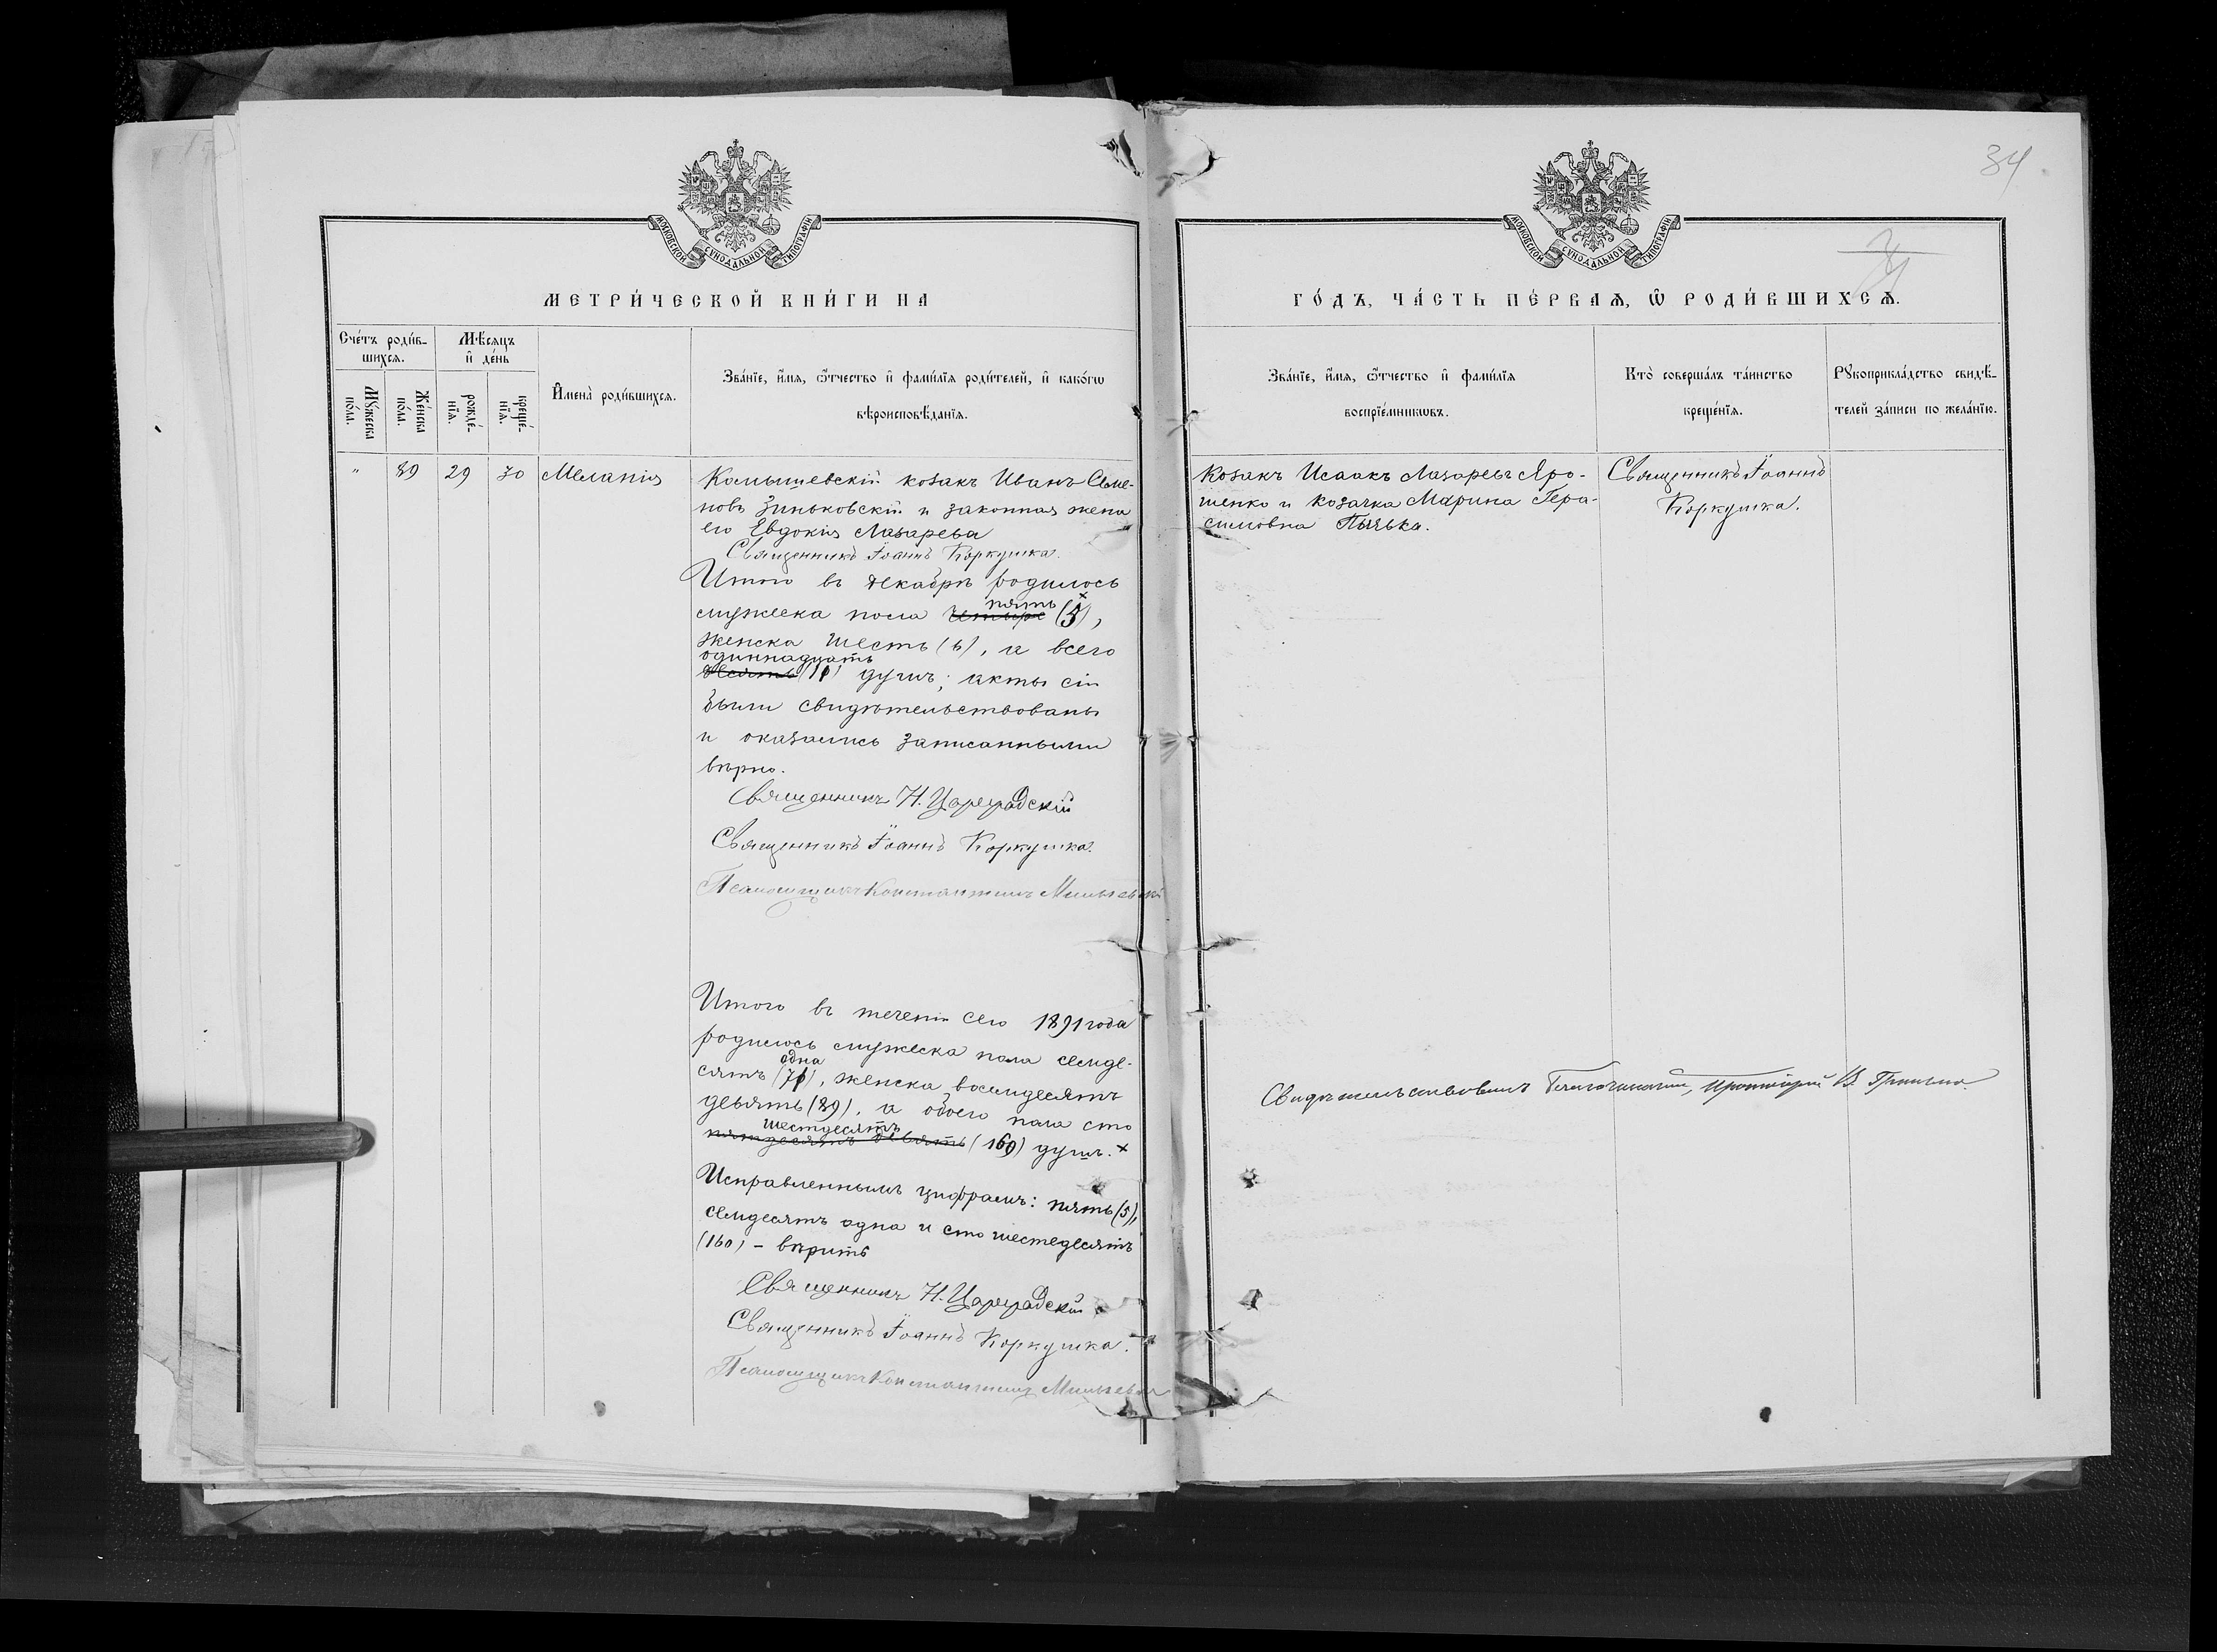 34
МОСКОВСКОЙ СѴНОДАЛЬНОЙ ТИПОГРАФІИ
МОСКОВСКОЙ СѴНОДАЛЬНОЙ ТИПОГРАФІИ
МЕТРИ́ЧЕСКОЙ КНИ́ГИ НА
ГО́ДЪ, ЧА́СТЬ ПЕ́РВАѦ, Ѿ РОДИ́ВШИХСѦ.
Сче́тъ роди́в-
шихсѧ.
Мꙋжеска по́ла.
Же́нска по́ла.
Мѣ́сѧцъ
и҆ де́нь
рожде́-
нїѧ.
креще́-
нїѧ.
И҆мена̀ роди́вшихсѧ.
Зва́нїе, и҆́мѧ, ѻ҆́тчество и҆ фами́лїѧ роди́телей, и҆ како́гѡ
вѣроисповѣ́данїѧ.
Зва́нїе, и҆́мѧ, ѻ҆́тчество и҆ фами́лїѧ
воспрїе́мникѡвъ.
Кто̀ соверша́лъ та́инство
креще́нїѧ.
Рꙋкоприкла́дство свидѣ́-
телей за́писи по жела́нїю.
" 89 29 30 Меланія
Камышевскій козакъ Иванъ Семе-
новъ Зиньковскій и законная жена
его Евдокія Лазарева
Священникъ Іоаннъ Коркушка.
Козакъ Исаакъ Лазаревъ Яро-
шенко и козачка Марина Гера-
симовна Пычька.
Священникъ Іоаннъ
Коркушка.
Итого въ декабрѣ родилось
мужеска пола четыре пять (5),
женска шесть (6), а всего
одиннадцать
десять (11) душъ; акты сіи
были свидѣтельствованы
и оказались записанными
вѣрно.
Священникъ Н. Цареградскій
Священникъ Іоаннъ Коркушка.
Псаломщикъ Константинъ
Итого въ теченіи сего 1891 года
родилось мужеска пола семде-
сятъ одна (71), женска восемдесятъ
девять (89), а обоего пола сто
шестдесятъ
пятдесятъ девять (160) душъ. ×
Исправленнымъ цифрамъ: пять (5),
семдесятъ одна и сто шестедесятъ
(160) – вѣрить
Священникъ Н. Цареградскій
Священникъ Іоаннъ Коркушка.
Псаломщикъ Константинъ
Свидѣтельствовалъ Благочинный, Протоіерей